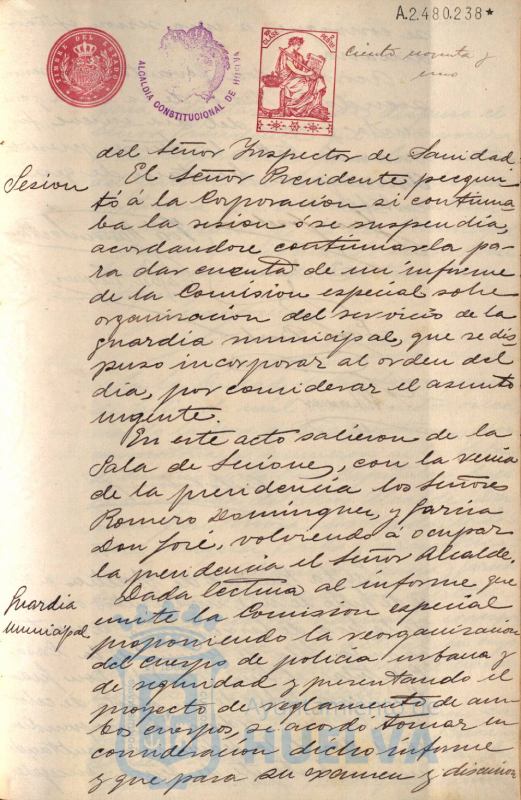 A.2.480.238*
TIMBRE DEL ESTADO
ALCALDIA CONSTITUCIONAL DE HUELVA
ciento noventa y
uno
del Señor Inspector de Sanidad
Sesion
El Señor Presidente pregun
tó á la Corporacion si continua
ba la sesion ó se suspendia,
acordandose continuarla pa
ra dar cuenta de un informe
de la Comision especial sobre
organizacion del servicio de la
guardia municipal, que se dis
puso incorporar al orden del
dia, por considerar el asunto
urgente.
En este acto salieron de la
Sala de Sesiones, con la venia
de la presidencia los Señores
Romero Dominguez, y Garcia
Don José, volviendo á ocupar
la presidencia el Señor Alcalde.
Guardia
municipal
Dada lectura al informe que
emite la Comision especial
proponiendo la reorganizacion
del cuerpo de policia urbana y
de seguridad y presentando el
proyecto de reglamento de am
bos cuerpos, se acordó tomar en
consideracion dicho informe
y que para su examen y discusion
HUELVA